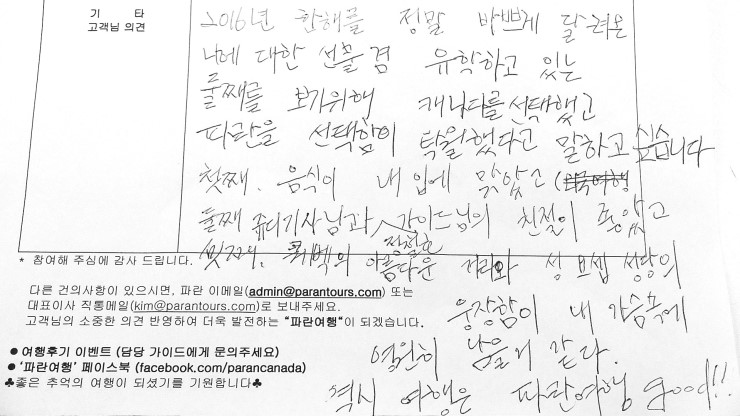 기 타
고객님 의견
2016년 한해를 정말 바쁘게 달려온
나에 대한 선물 겸 유학하고 있는
둘째를 보기위해 캐나다를 선택했고
파란을 선택함이 탁월했다고 말하고 싶습니다
첫째. 음식이 내 입에 맞았고
둘째 쥬디기사님과 가이드님의 친절이 좋았고
셋째. 퀘벡의 아름다운 거리와 성 요셉 성당의
웅장함이 내 가슴속에
영원히 남을거 같다.
역시 여행은 파란여행 good!!
* 참여해 주심에 감사 드립니다.
다른 건의사항이 있으시면, 파란 이메일(admin@parantours.com) 또는
대표이사 직통메일(kim@parantours.com)로 보내주세요.
고객님의 소중한 의견 반영하여 더욱 발전하는 "파란여행"이 되겠습니다.
● 여행후기 이벤트 (담당 가이드에게 문의주세요)
● '파란여행' 페이스북 (facebook.com/parancanada)
♣좋은 추억의 여행이 되셨기를 기원합니다♣